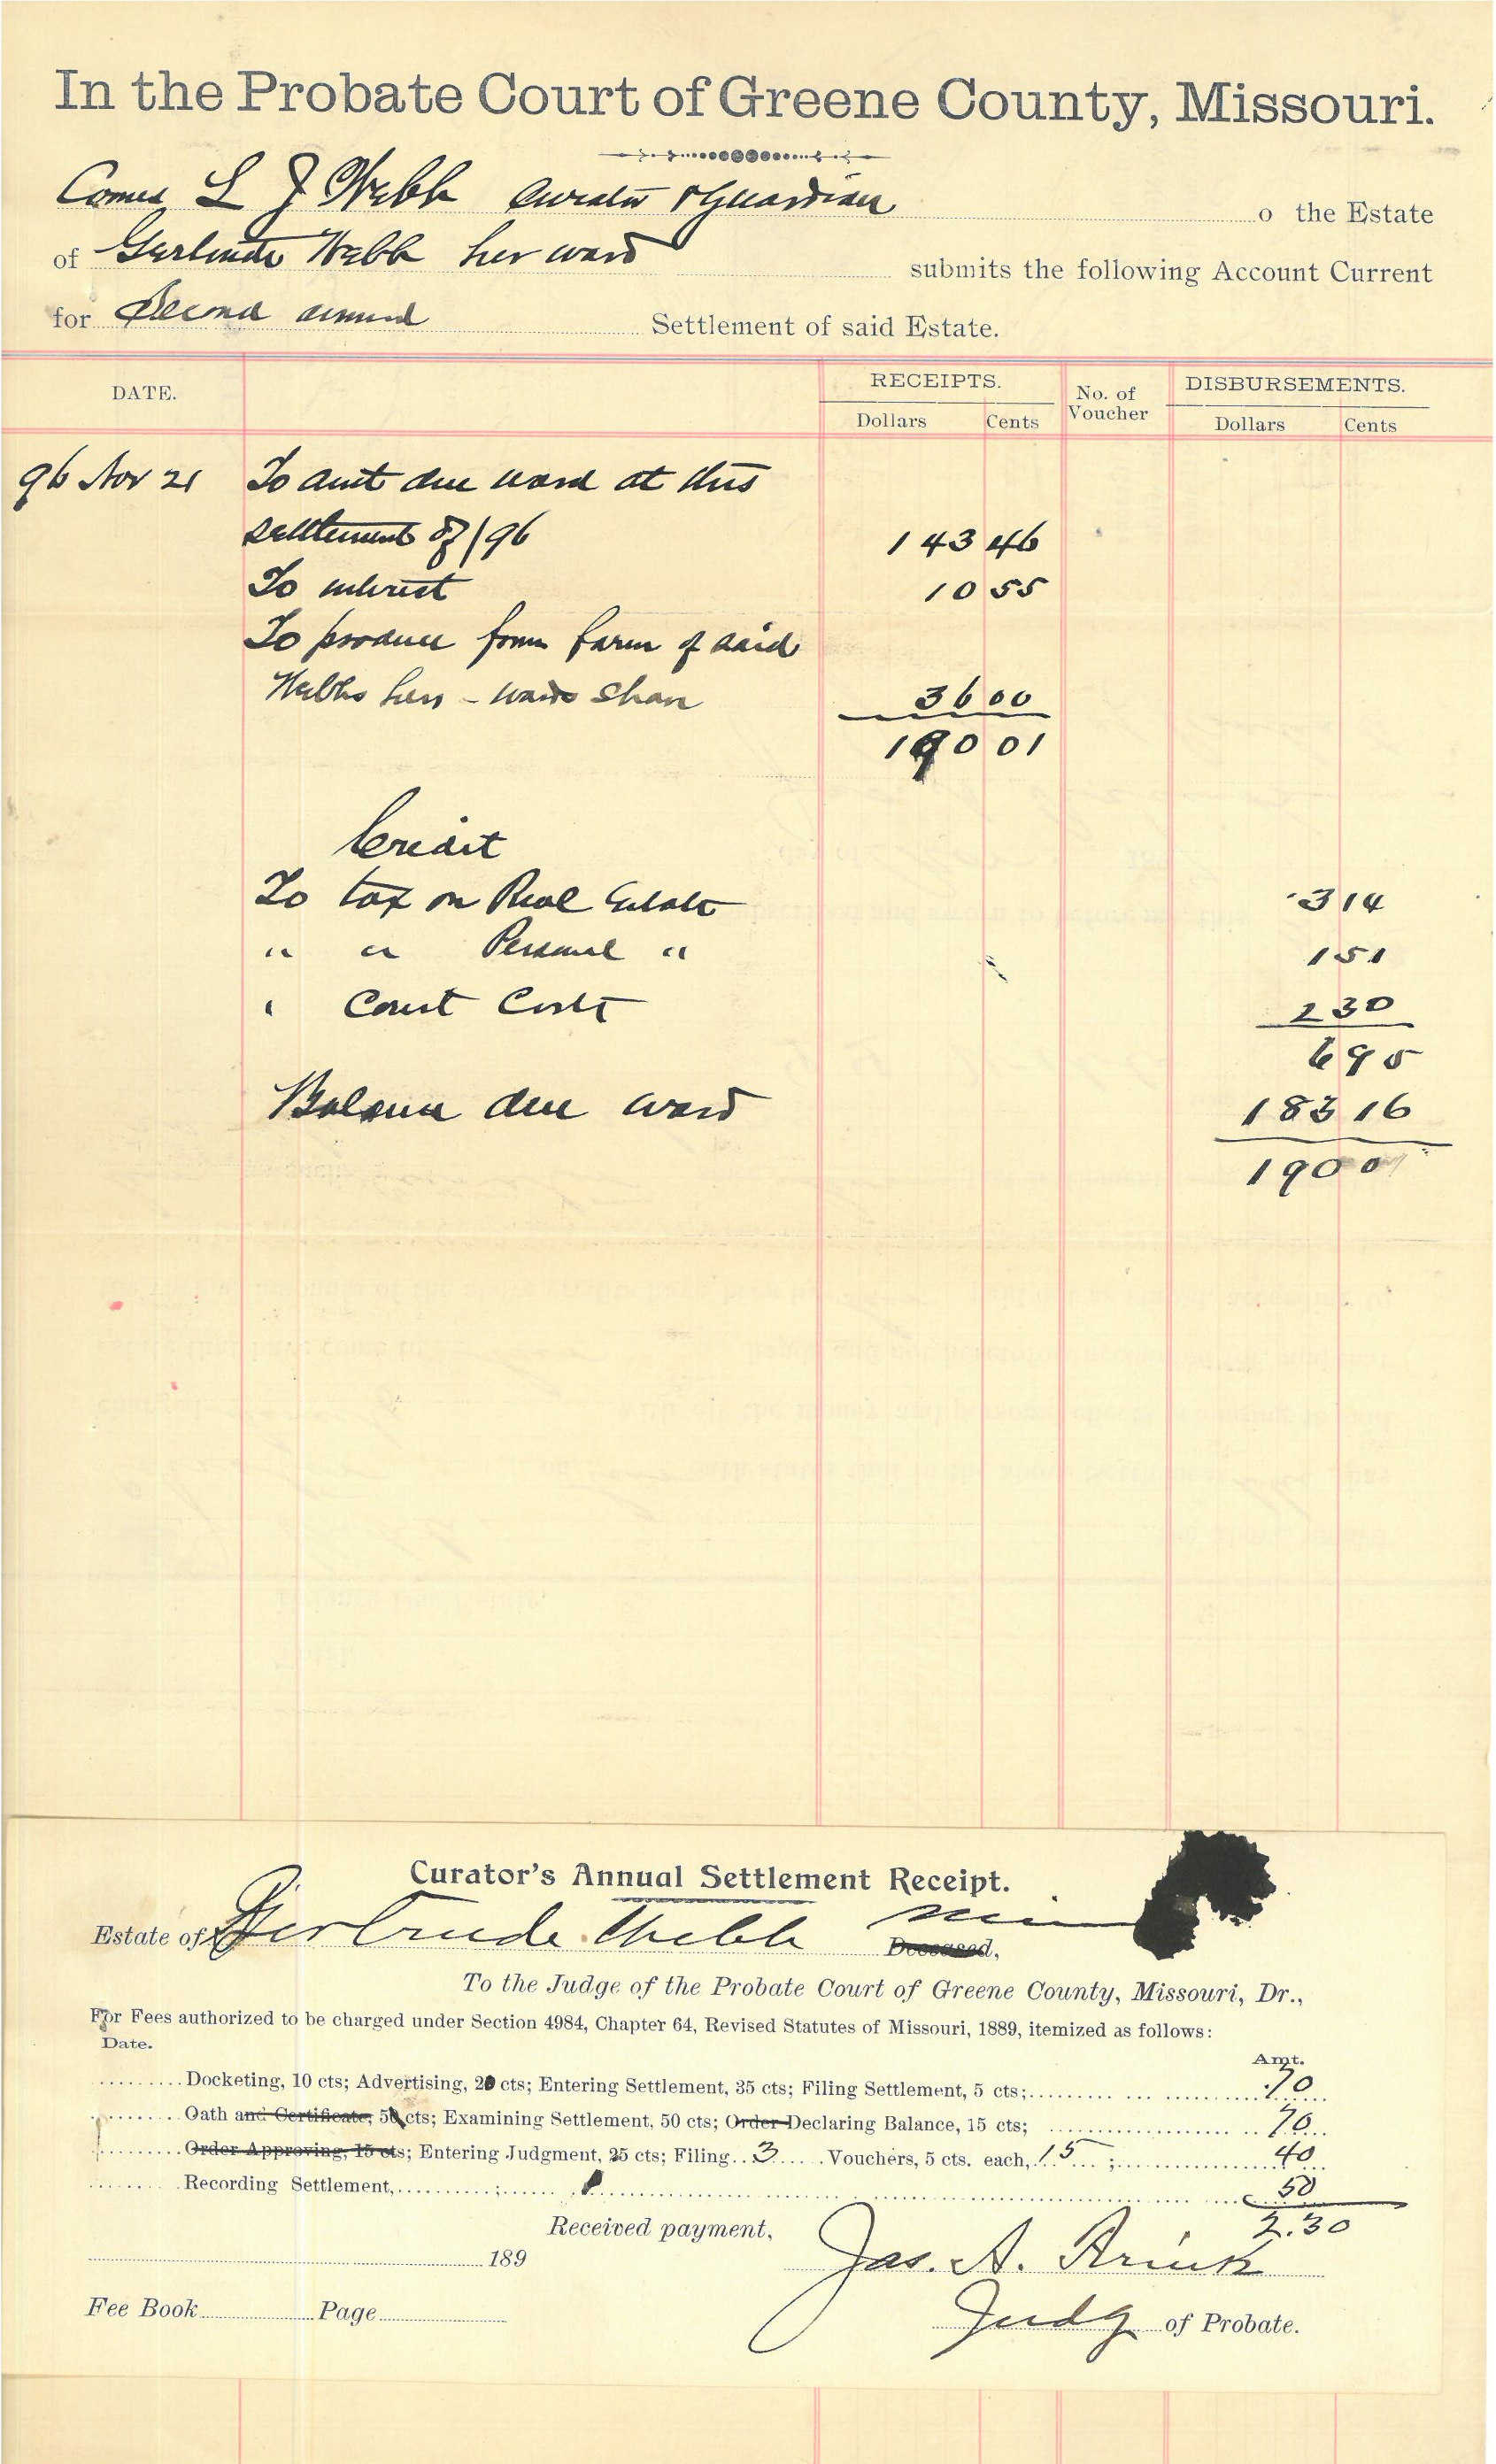 In the Probate Court of Greene County, Missouri.
Comes L J Webb Curator & Guardian o the Estate
of Gertrude Webb her ward submits the following Account Current
for Second annual Settlement of said Estate.
DATE. RECEIPTS. No. of Voucher DISBURSEMENTS.
Dollars Cents Dollars Cents
96 Nov 21 To amt due ward at this
settlement of /96 143 46
To interest 10 55
To produce from farm of said
Webbs heirs - wards share 36 00
190 01
Credit
To tax on Real Estate 3 14
" " Personal " 1 51
" Court Costs 2 30
6 95
Balance due ward 183 16
190 01
Curator's Annual Settlement Receipt.
Estate of Gertrude Webb Deceased,
To the Judge of the Probate Court of Greene County, Missouri, Dr.,
For Fees authorized to be charged under Section 4984, Chapter 64, Revised Statutes of Missouri, 1889, itemized as follows:
Date. Amt.
Docketing, 10 cts; Advertising, 20 cts; Entering Settlement, 35 cts; Filing Settlement, 5 cts; .70
Oath and Certificate, 5 cts; Examining Settlement, 50 cts; Order Declaring Balance, 15 cts; 70
Order Approving, 15 cts; Entering Judgment, 25 cts; Filing 3 Vouchers, 5 cts. each, 15 ; 40
Recording Settlement, ; 50
2.30
Received payment,
189 Jas. A.
Fee Book Page Judge of Probate.